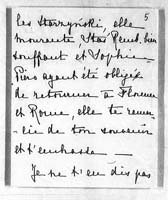 5
les Starzyński, elle
mourante, Stas' Réné, bien
souffrant et Sophie.
Piero ayant été obligé
de retourner à Florence
et Rome, elle te remer-
cie de ton souvenir
et t'embrasse.
Je ne t'en dis pas